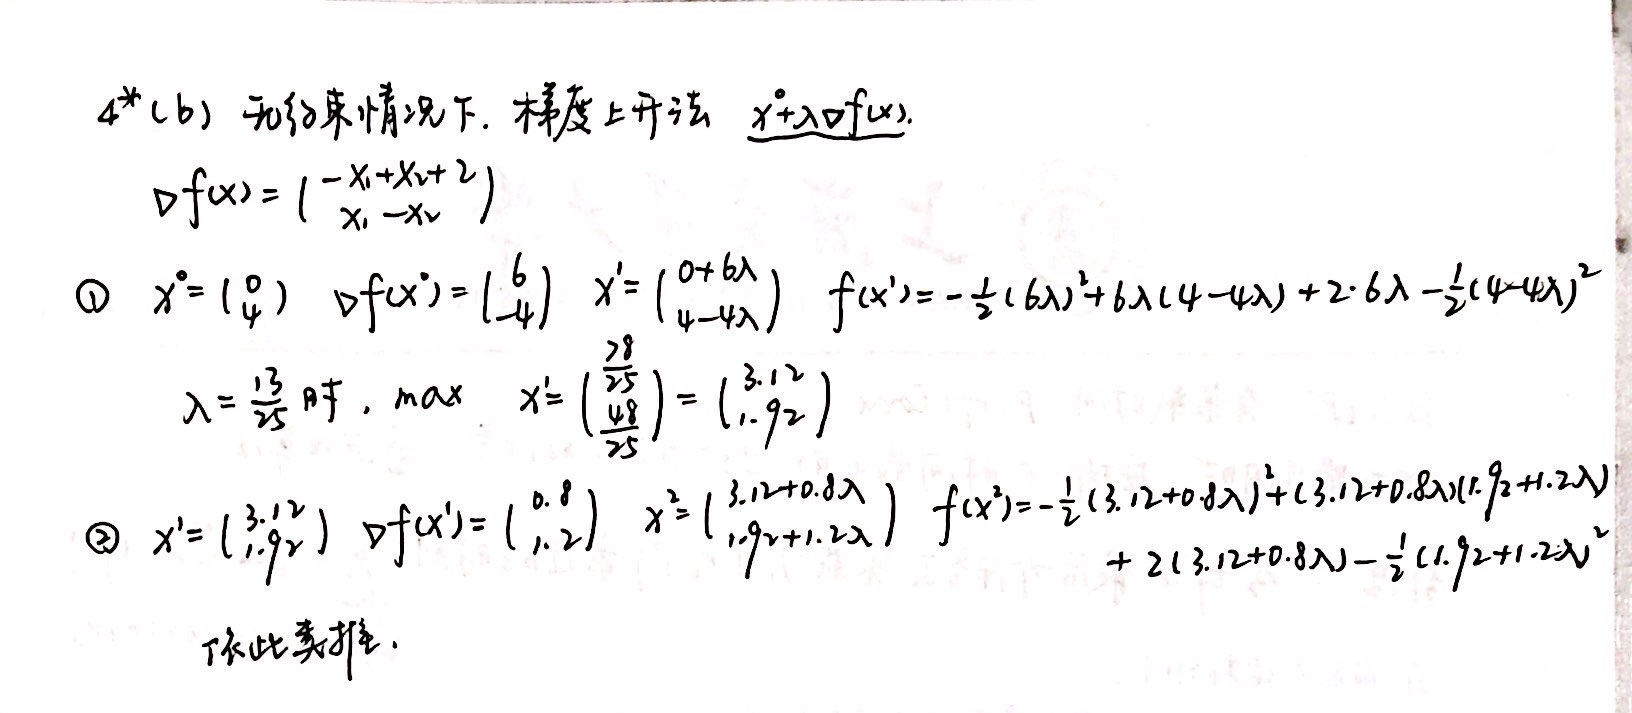 4*(b) 无约束情况下. 梯度上升法 x⁰+λ∇f(x).
∇f(x)=(-x₁+x₂+2
x₁-x₂)
① x⁰=(0 4) ∇f(x⁰)=(6 -4) x¹=(0+6λ 4-4λ) f(x¹)=-½(6λ)²+6λ(4-4λ)+2·6λ-½(4-4λ)²
λ=13/25 时, max x¹=(78/25 48/25)=(3.12 1.92)
② x¹=(3.12 1.92) ∇f(x¹)=(0.8 1.2) x²=(3.12+0.8λ 1.92+1.2λ) f(x²)=-½(3.12+0.8λ)²+(3.12+0.8λ)(1.92+1.2λ)
+2(3.12+0.8λ)-½(1.92+1.2λ)²
依此类推.